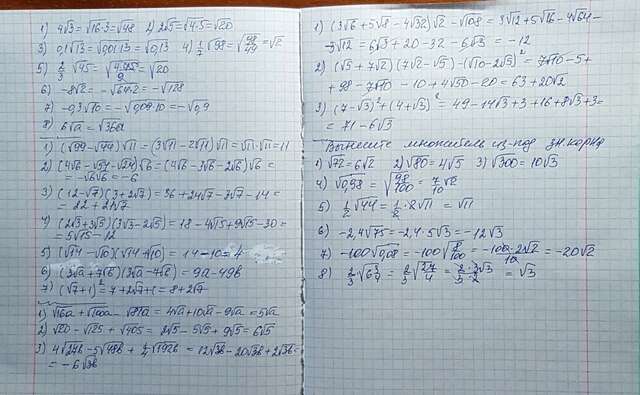 1) 4√3 = √16·3 = √48 2) 2√5 = √4·5 = √20
3) 0,1√13 = √0,01·13 = √0,13 4) 1/7 √98 = √98/49 = √2
5) 2/3 √45 = √4·45/9 = √20
6) -8√2 = -√64·2 = -√128
7) -0,3√10 = -√0,09·10 = -√0,9
8) 6√a = √36a
1) (√99 - √44)√11 = (3√11 - 2√11)√11 = √11·√11 = 11
2) (4√6 - √54 - √24)√6 = (4√6 - 3√6 - 2√6)√6 =
= -√6√6 = -6
3) (12 - √7)(3 + 2√7) = 36 + 24√7 - 3√7 - 14 =
= 22 + 21√7
4) (2√3 + 3√5)(3√3 - 2√5) = 18 - 4√15 + 9√15 - 30 =
= 5√15 - 12
5) (√14 - √10)(√14 + √10) = 14 - 10 = 4
6) (3√a + 7√b)(3√a - 7√b) = 9a - 49b
7) (√7 + 1)² = 7 + 2√7 + 1 = 8 + 2√7
1) √16a + √100a - √81a = 4√a + 10√a - 9√a = 5√a
2) √20 - √125 + √405 = 2√5 - 5√5 + 9√5 = 6√5
= -6√3b
1) (3√6 + 5√8 - 4√32)√2 - √108 = 3√12 + 5√16 - 4√64 -
-3√12 = 6√3 + 20 - 32 - 6√3 = -12
2) (√5 + 7√2)(7√2 - √5) - (√10 - 2√5)² = 7√10 - 5 +
+ 98 - 7√10 - 10 + 4√50 - 20 = 63 + 20√2
3) (7 - √3)² + (4 + √3)² = 49 - 14√3 + 3 + 16 + 8√3 + 3 =
= 71 - 6√3
Вынесите множитель из-под зн. корня
1) √72 = 6√2 2) √80 = 4√5 3) √300 = 10√3
4) √0,98 = √98/100 = 7/10 √2
5) 1/2 √44 = 1/2 · 2√11 = √11
6) -2,4√75 = -2,4·5√3 = -12√3
7) -100√0,08 = -100√8/100 = -100·2√2/10 = -20√2
8) 2/3 √6 3/4 = 2/3 √27/4 = 2/3 · 3√3/2 = √3